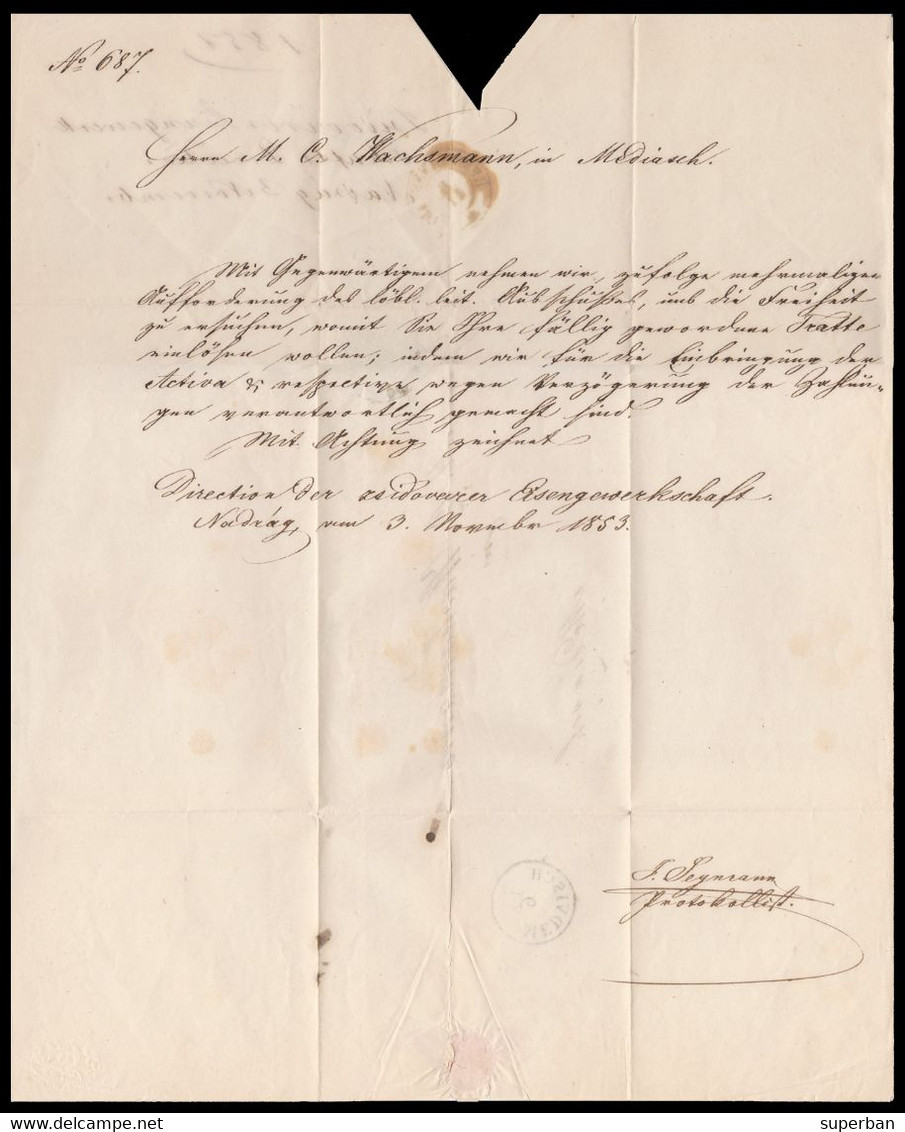 No 687.
Herrn M. C. Wachsmann, in Mediasch.
Mit Gegenwärtigem nehmen wir, zufolge mehrmaliger
Aufforderung des löbl. leit. Ausschußes, uns die Freiheit
zu ersuchen, womit Sie Ihre fällig gewordene Tratte
einlösen wollen; indem wir für die Einbringung der
Activa & respective wegen Verzögerung der Zahlun-
gen verantwortlich gemacht sind.
Mit Achtung zeichnet
Direction der zsidovarer Eisengewerkschaft.
Nadrág, am 3. Novembr 1853.
Protokollist.
www.delcampe.net
superban